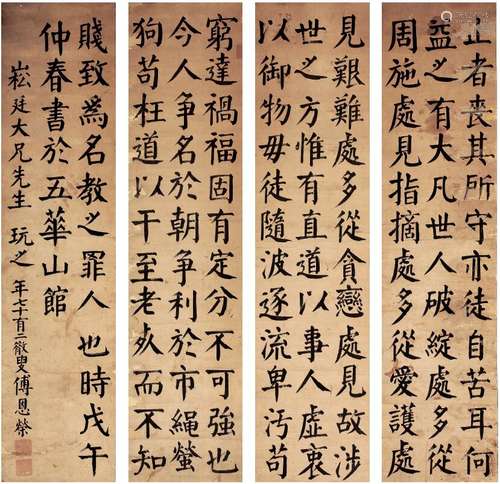 止者喪其所守亦徒自苦耳何
益之有大凡世人破綻處多從
周施處見指摘處多從愛護處
見艱難處多從貪戀處見故涉
世之方惟有直道以事人虛衷
以御物毋徒隨波逐流卑汚苟
窮達禍福固有定分不可強也
今人争名於朝争利於市繩螢
狗苟枉道以干至老死而不知
賤致為名教之罪人也時戊午
仲春書於五華山館
崧廷大兄先生 玩之 年七十有二 叟傅恩榮